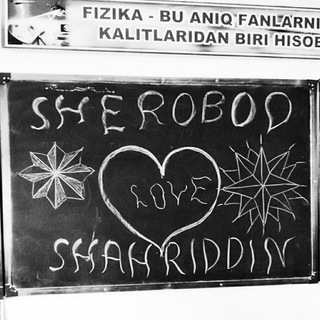 FIZIKA - BU ANIQ FANLARNI
KALITLARIDAN BIRI HISOB
SHEROBOD
LOVE
SHAHRIDDIN